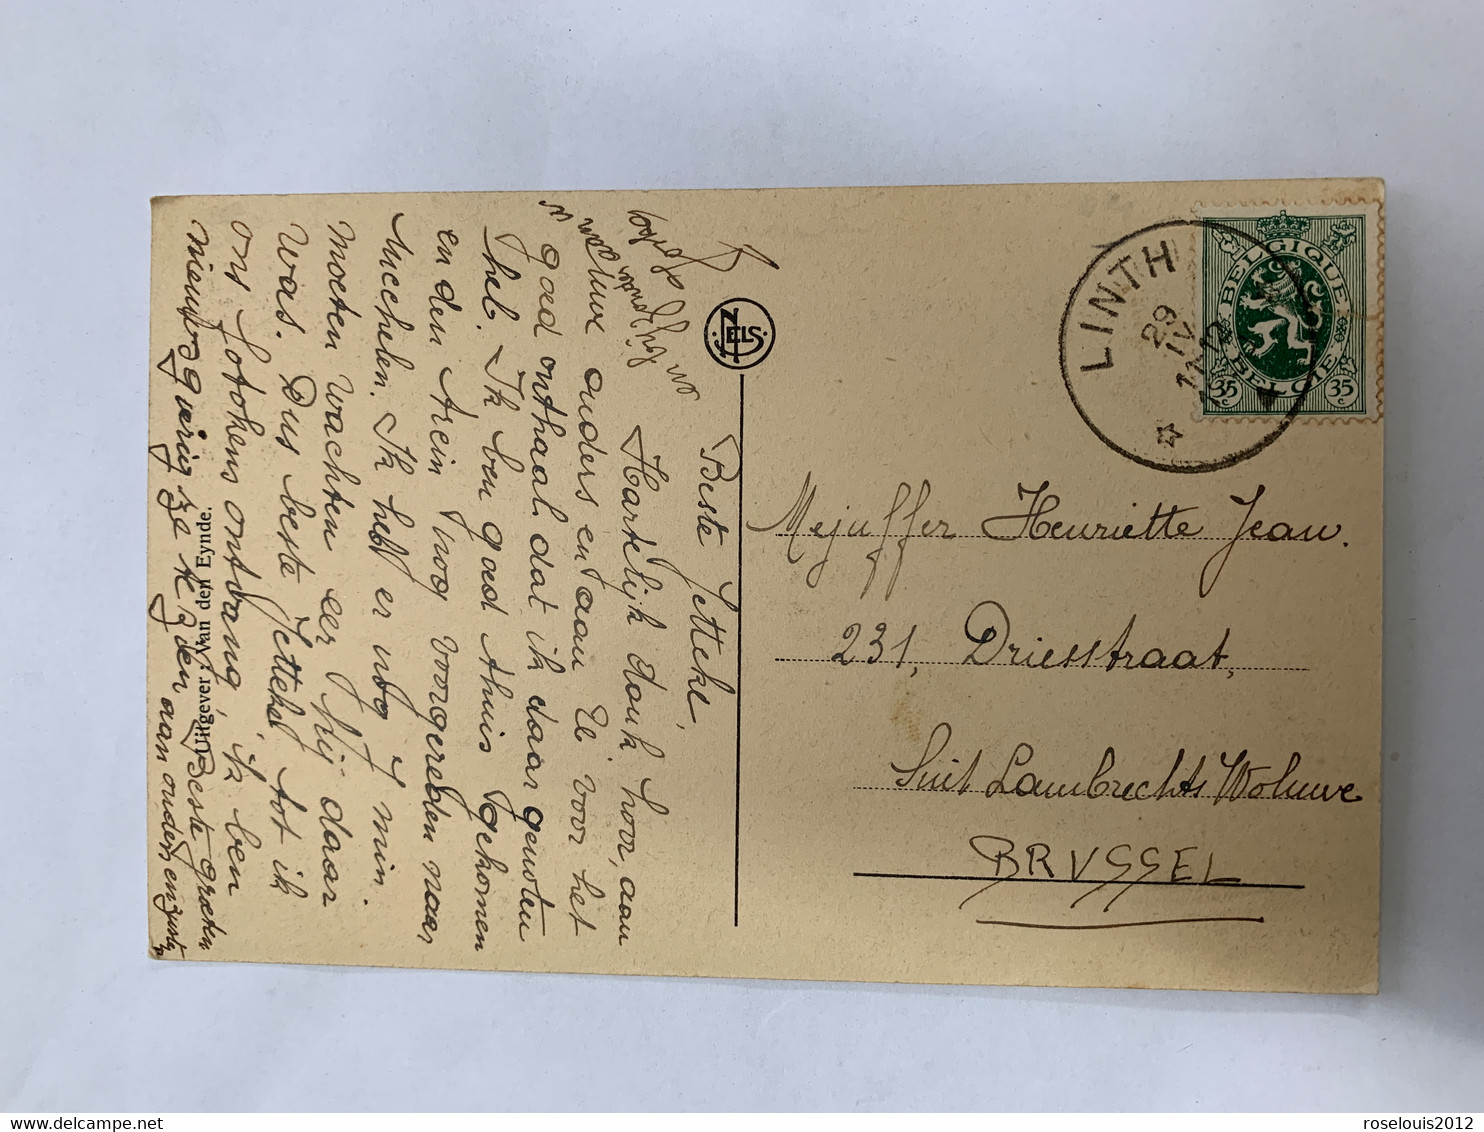 Beste Jetteke,
Hartelijk dank hoor, aan
Uwe ouders en aan U voor het
goed onthaal dat ik daar genoten
heb. Ik ben goed thuis gekomen
en den trein nog voorgereden naar
Mechelen. Ik heb er nog 7 min.
moeten wachten eer hij daar
was. Dus beste Jetteke tot ik
ons fotokens ontvang, ik ben
nieuwsgierig ze te zien. Beste groeten
aan ouders en
Uitgever, Van den Eynde.
NELS
LINTH
29
IV
BELGIQUE
BELGIË
35 c
35 c
Mejuffer Henriette Jean.
231, Driesstraat,
Sint Lambrechts Woluwe
BRUSSEL
roselouis2012